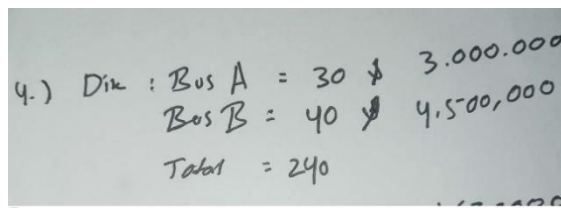 4.) Dik : Bus A = 30 3.000.000
Bus B = 40 4.500,000
Total = 240